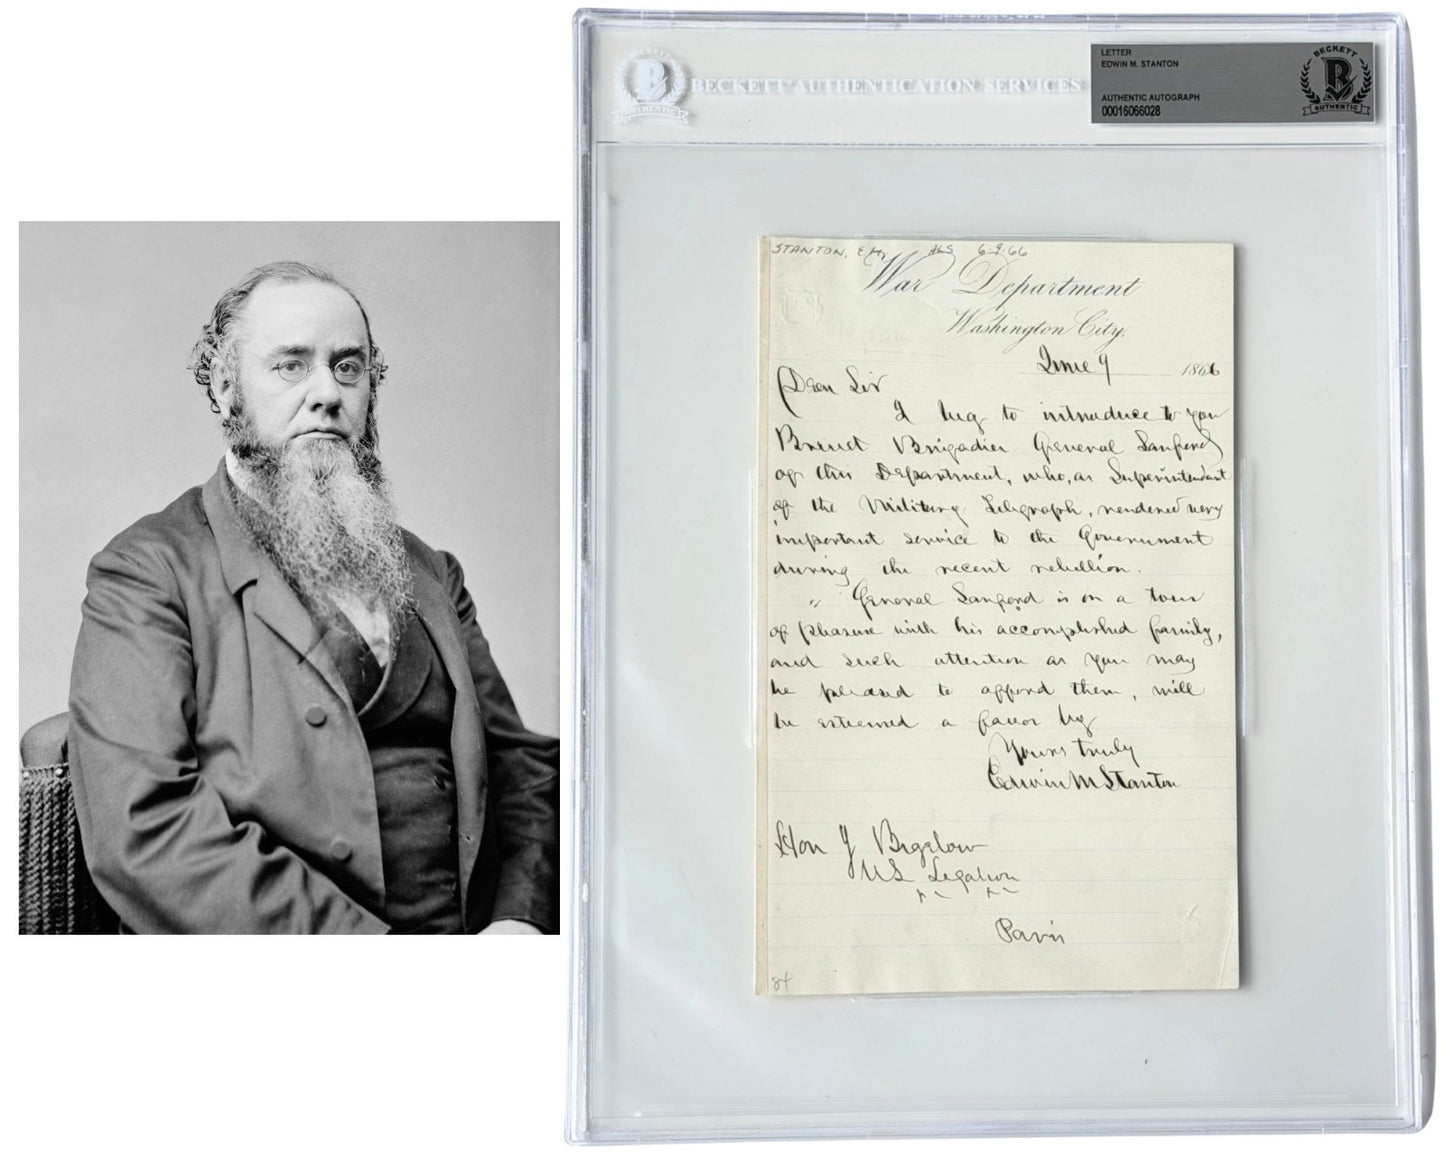 BECKETT AUTHENTICATION SERVICES
B
AUTHENTIC
LETTER
EDWIN M. STANTON
AUTHENTIC AUTOGRAPH
00016066028
BECKETT
B
AUTHENTIC
STANTON, E M, ALS 6-9-66
War Department
Washington City,
June 9 1866
Dear Sir
I beg to introduce to you
Brevet Brigadier General Sanford
of this Department, who, as Superintendant
of the Military Telegraph, rendered very
important service to the Government
during the recent rebellion.
" General Sanford is on a tour
of pleasure with his accomplished family,
and such attention as you may
be pleased to afford them, will
be esteemed a favor by
Yours truly
Edwin M Stanton
Hon J Bigelow
US Legation
Paris
84